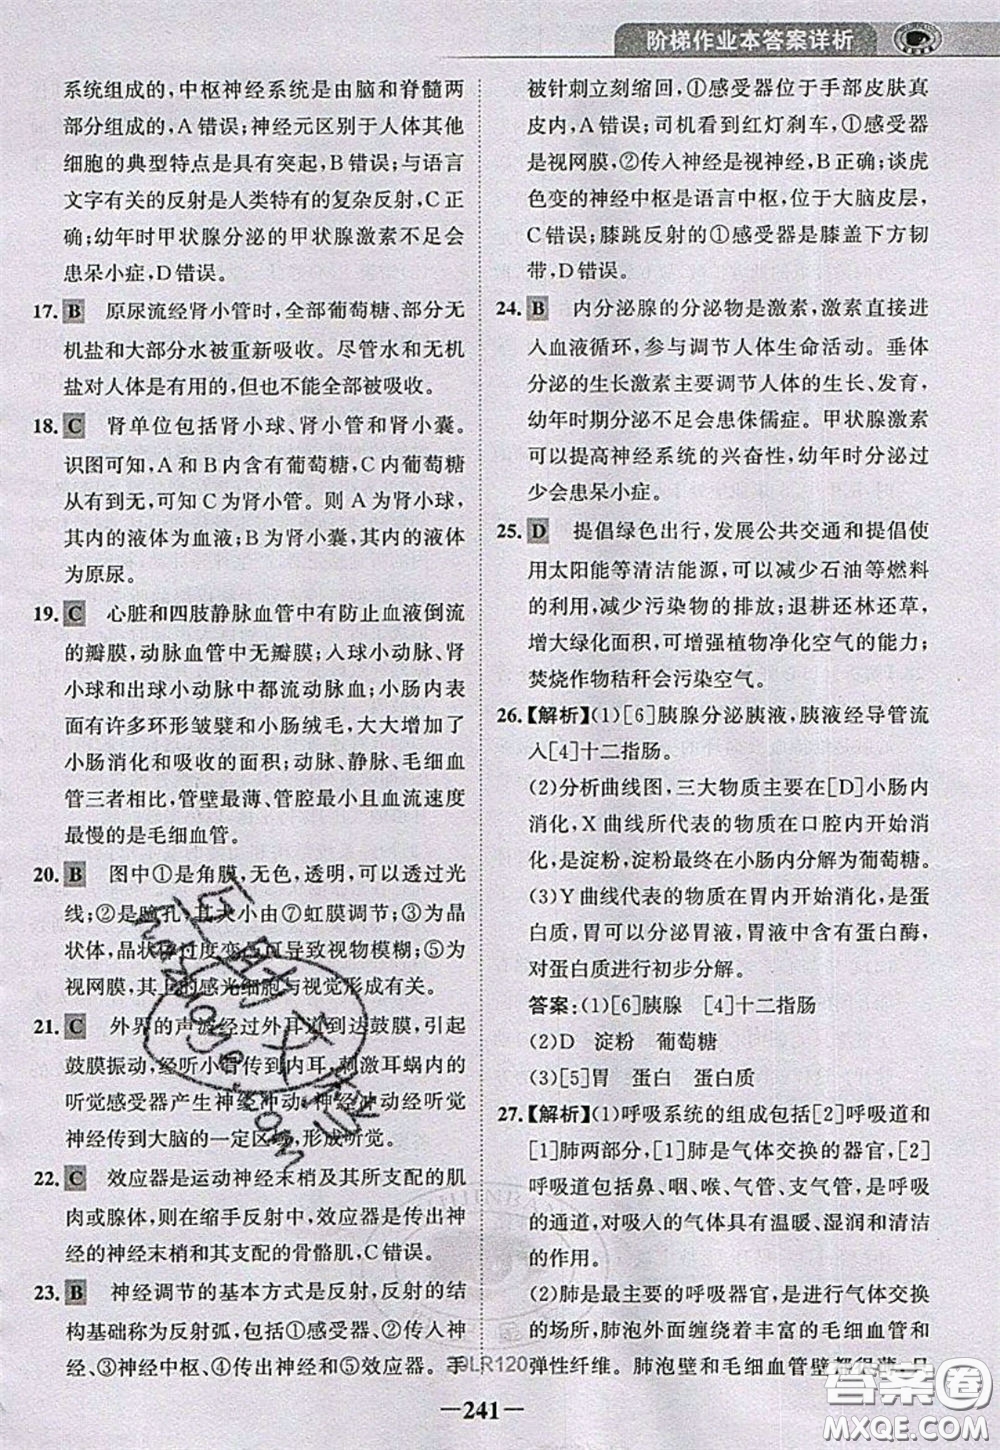 阶梯作业本答案详析
系统组成的,中枢神经系统是由脑和脊髓两
部分组成的,A错误;神经元区别于人体其他
细胞的典型特点是具有突起,B错误;与语言
文字有关的反射是人类特有的复杂反射,C正
确;幼年时甲状腺分泌的甲状腺激素不足会
患呆小症,D错误。
17. B 原尿流经肾小管时,全部葡萄糖、部分无
机盐和大部分水被重新吸收。尽管水和无机
盐对人体是有用的,但不能全部被吸收。
18. C 肾单位包括肾小球、肾小管和肾小囊。
识图可知,A和B内含有葡萄糖,C内葡萄糖
从有到无,可知C为肾小管。则A为肾小球,
其内的液体为血液;B为肾小囊,其内的液体
为原尿。
19. C 心脏和四肢静脉血管中有防止血液倒流
的瓣膜,动脉血管中无瓣膜;入球小动脉、肾
小球和出球小动脉中都流动脉血;小肠内表
面有许多环形皱襞和小肠绒毛,大大增加了
小肠消化和吸收的面积;动脉、静脉、毛细血
管三者相比,管壁最薄、管腔最小且血流速度
最慢的是毛细血管。
20. B 图中①是角膜,无色,透明,可以透过光
线;②是瞳孔,其大小由⑦虹膜调节;③为晶
状体,晶状体过度变凸可导致视物模糊;⑤为
视网膜,其上的感光细胞与视觉形成有关。
21. C 外界的声波经过外耳道到达鼓膜,引起
鼓膜振动,经听小骨传到内耳,刺激耳蜗内的
听觉感受器产生神经冲动,神经冲动经听觉
神经传到大脑的一定区域,形成听觉。
22. C 效应器是运动神经末梢及其所支配的肌
肉或腺体,则在缩手反射中,效应器是传出神
经的神经末梢和其支配的骨骼肌,C错误。
23. B 神经调节的基本方式是反射,反射的结
构基础称为反射弧,包括①感受器、②传入神
经、③神经中枢、④传出神经和⑤效应器。手
被针刺立刻缩回,①感受器位于手部皮肤真
皮内,A错误;司机看到红灯刹车,①感受器
是视网膜,②传入神经是视神经,B正确;谈虎
色变的神经中枢是语言中枢,位于大脑皮层,
C错误;膝跳反射的①感受器在膝盖下方韧
带,D错误。
24. B 内分泌腺的分泌物是激素,激素直接进
入血液循环,参与调节人体生命活动。垂体
分泌的生长激素主要调节人体的生长、发育,
幼年时期分泌不足会患侏儒症。甲状腺激素
可以提高神经系统的兴奋性,幼年时分泌过
少会患呆小症。
25. D 提倡绿色出行,发展公共交通和提倡使
用太阳能等清洁能源,可以减少石油等燃料
的利用,减少污染物的排放;退耕还林还草,
增大绿化面积,可增强植物净化空气的能力;
焚烧作物秸秆会污染空气。
26.【解析】(1)[6]胰腺分泌胰液,胰液经导管流
入[4]十二指肠。
(2)分析曲线图,三大物质主要在[D]小肠内
消化,X曲线所代表的物质在口腔内开始消
化,是淀粉,淀粉最终在小肠内分解为葡萄糖。
(3)Y曲线代表的物质在胃内开始消化,是蛋
白质,胃可以分泌胃液,胃液中含有蛋白酶,
对蛋白质进行初步分解。
答案:(1)[6]胰腺 [4]十二指肠
(2)D 淀粉 葡萄糖
(3)[5]胃 蛋白 蛋白质
27.【解析】(1)呼吸系统的组成包括[2]呼吸道和
[1]肺两部分,[1]肺是气体交换的器官,[2]
呼吸道包括鼻、咽、喉、气管、支气管,是气体
的通道,对吸入的气体具有温暖、湿润和清洁
的作用。
(2)肺是主要的呼吸器官,是气体交换的主要
场所。肺泡外面缠绕着丰富的毛细血管和
弹性纤维。肺泡壁和毛细血管壁都很薄,只
20LR120
241
答案圈
MXQE.COM